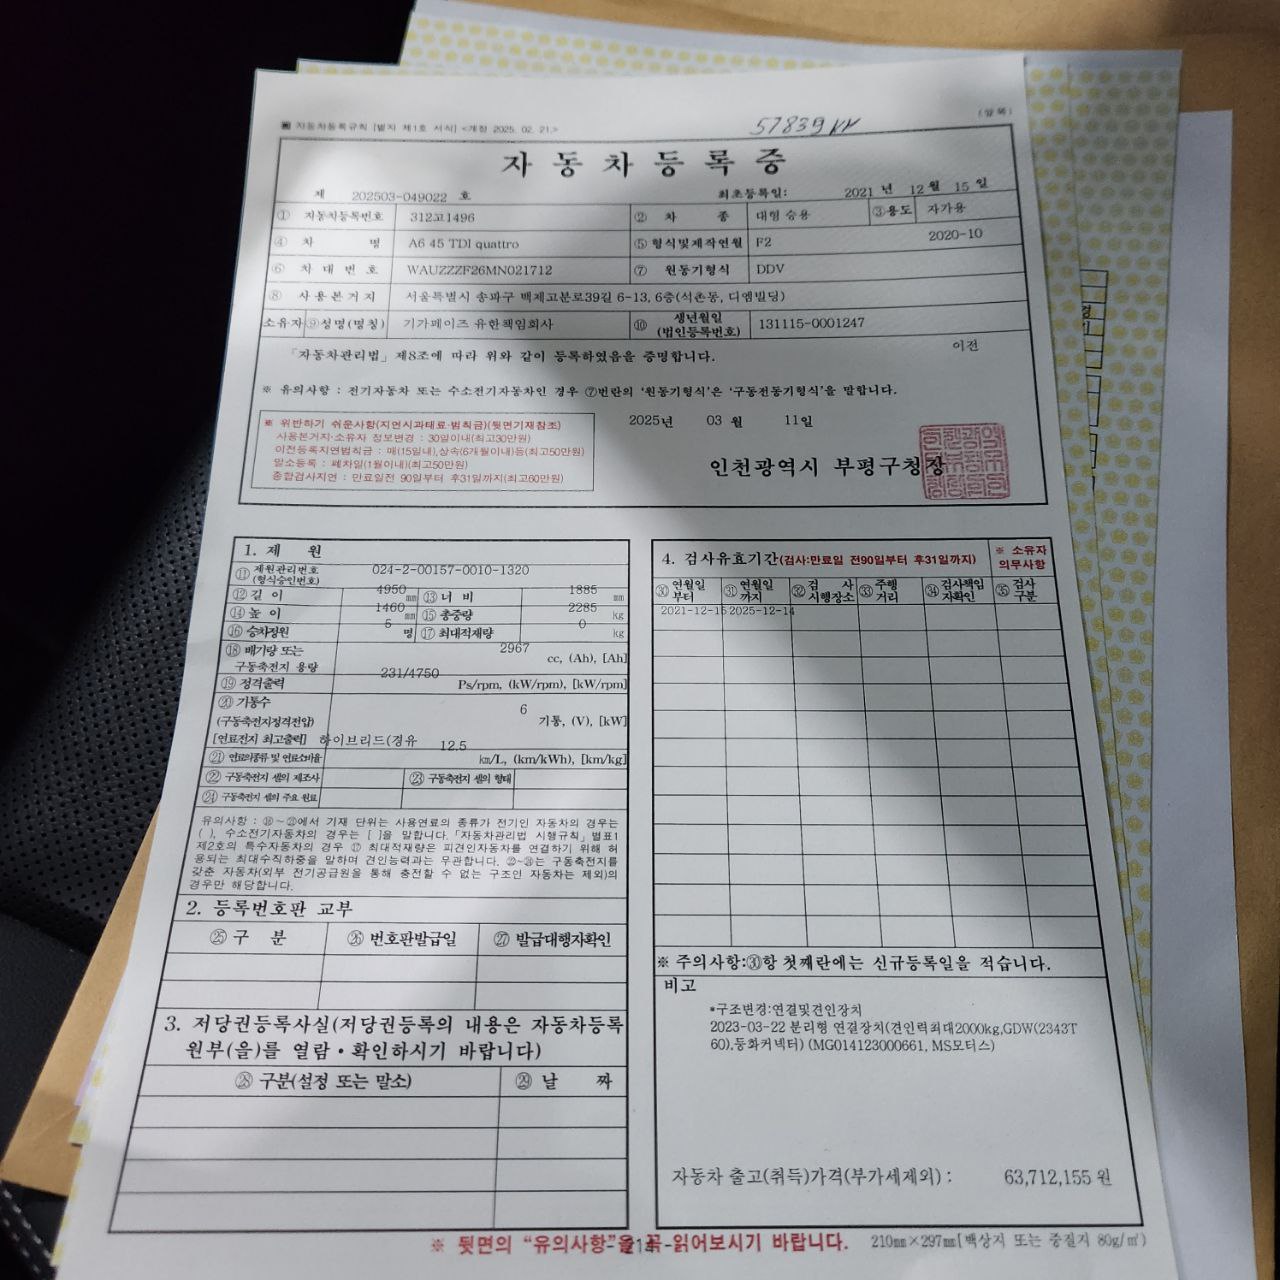 (앞쪽)
■ 자동차등록규칙 [별지 제1호 서식] <개정 2025. 02. 21.>
57839
자동차등록증
제 202503-049022 호
최초등록일: 2021 년 12 월 15 일
① 자동차등록번호 312고1496 ② 차 종 대형 승용 ③용도 자가용
④ 차 명 A6 45 TDI quattro ⑤ 형식및제작연월 F2 2020-10
⑥ 차 대 번 호 WAUZZZF26MN021712 ⑦ 원동기형식 DDV
⑧ 사 용 본 거 지 서울특별시 송파구 백제고분로39길 6-13, 6층(석촌동, 디엠빌딩)
소유자 ⑨성명(명칭) 기가페이즈 유한책임회사 ⑩ 생년월일
(법인등록번호) 131115-0001247
「자동차관리법」 제8조에 따라 위와 같이 등록하였음을 증명합니다.
이전
※ 유의사항 : 전기자동차 또는 수소전기자동차인 경우 ⑦번란의 '원동기형식'은 '구동전동기형식'을 말합니다.
2025년 03 월 11일
※ 위반하기 쉬운사항(지연시과태료·범칙금)(뒷면기재참조)
사용본거지·소유자 정보변경 : 30일이내(최고30만원)
이전등록지연범칙금 : 매(15일내),상속(6개월이내)등(최고50만원)
말소등록 : 폐차일(1월이내)(최고50만원)
종합검사지연 : 만료일전 90일부터 후31일까지(최고60만원)
인천광역시 부평구청장
1. 제 원
⑪ 제원관리번호
(형식승인번호) 024-2-00157-0010-1320
⑫ 길 이 4950 mm ⑬ 너 비 1885 mm
⑭ 높 이 1460 mm ⑮ 총중량 2285 kg
⑯ 승차정원 5 명 ⑰ 최대적재량 0 kg
⑱ 배기량 또는 2967
구동축전지 용량 cc, (Ah), [Ah]
⑲ 정격출력 231/4750 Ps/rpm, (kW/rpm), [kW/rpm]
⑳ 기통수 6
(구동축전지정격전압) 기통, (V), [kW]
[연료전지 최고출력] 하이브리드(경유 12.5
㉑ 연료의종류 및 연료소비율 km/L, (km/kWh), [km/kg]
㉒ 구동축전지 셀의 제조사 ㉓ 구동축전지 셀의 형태
㉔ 구동축전지 셀의 주요 원료
유의사항 : ⑱~㉑에서 기재 단위는 사용연료의 종류가 전기인 자동차의 경우는
( ), 수소전기자동차의 경우는 [ ]을 말합니다.「자동차관리법 시행규칙」별표1
제2호의 특수자동차의 경우 ⑰ 최대적재량은 피견인자동차를 연결하기 위해 허
용되는 최대수직하중을 말하며 견인능력과는 무관합니다. ㉒~㉔는 구동축전지를
갖춘 자동차(외부 전기공급원을 통해 충전할 수 없는 구조인 자동차는 제외)의
경우만 해당합니다.
2. 등록번호판 교부
㉕ 구 분 ㉖ 번호판발급일 ㉗ 발급대행자확인
3. 저당권등록사실(저당권등록의 내용은 자동차등록
원부(을)를 열람·확인하시기 바랍니다)
㉘ 구분(설정 또는 말소) ㉙ 날 짜
4. 검사유효기간(검사:만료일 전90일부터 후31일까지) ※ 소유자
의무사항
㉚ 연월일
부터 ㉛ 연월일
까지 ㉜ 검 사
시행장소 ㉝ 주행
거리 ㉞ 검사책임
자확인 ㉟ 검사
구분
2021-12-15 2025-12-14
※ 주의사항:㉚항 첫째란에는 신규등록일을 적습니다.
비고
*구조변경:연결및견인장치
2023-03-22 분리형 연결장치(견인력최대2000kg,GDW(2343T
60),등화커넥터) (MG014123000661, MS모터스)
자동차 출고(취득)가격(부가세제외) : 63,712,155 원
※ 뒷면의 "유의사항"을 꼭 읽어보시기 바랍니다.
210㎜×297㎜[백상지 또는 중질지 80g/㎡]